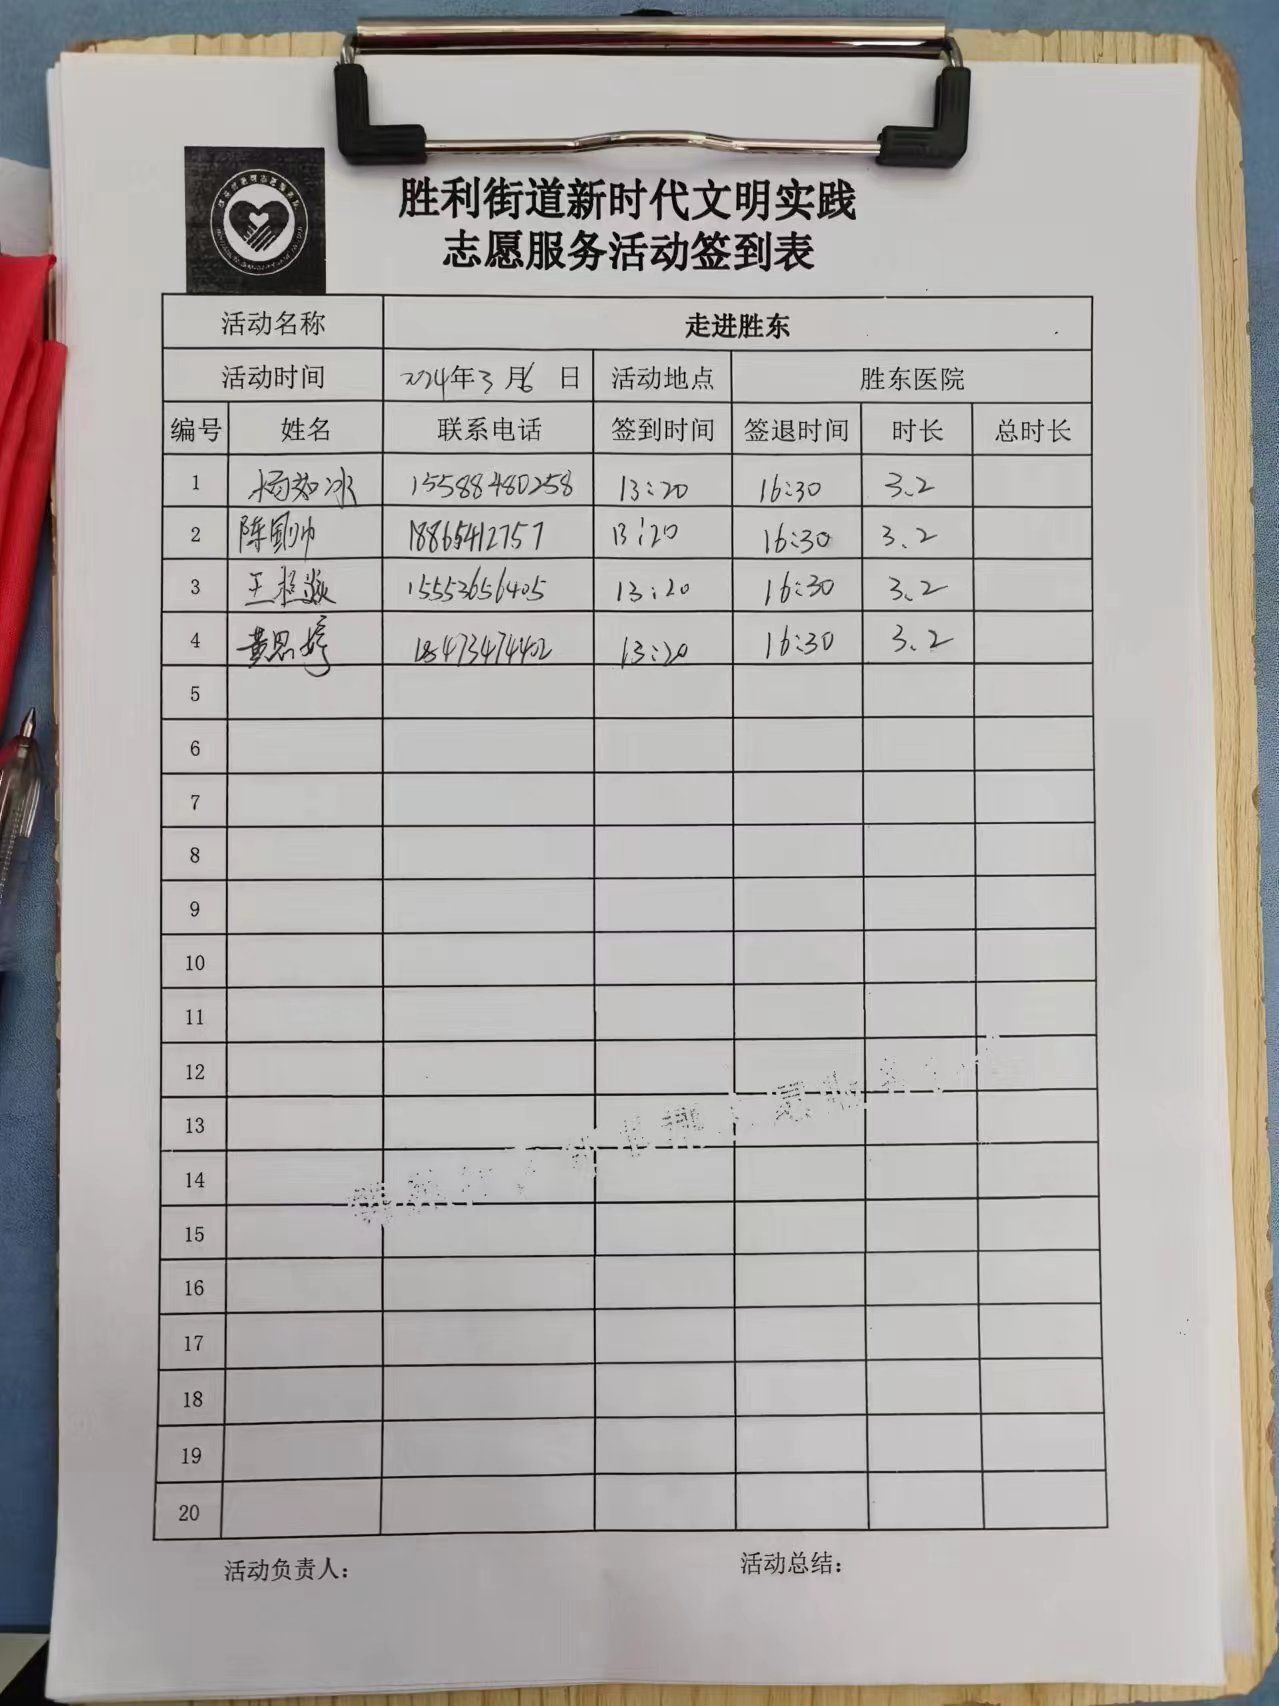 胜利街道新时代文明实践
志愿服务活动签到表
活动名称 走进胜东
活动时间 2024年3月6日 活动地点 胜东医院
编号 姓名 联系电话 签到时间 签退时间 时长 总时长
1 杨茹冰 15588480258 13:20 16:30 3.2
2 陈刚帅 18865412757 13:20 16:30 3.2
3 王 15553656405 13:20 16:30 3.2
4 黄思婷 18473474402 13:20 16:30 3.2
5
6
7
8
9
10
11
12
13
14
15
16
17
18
19
20
活动负责人: 活动总结: